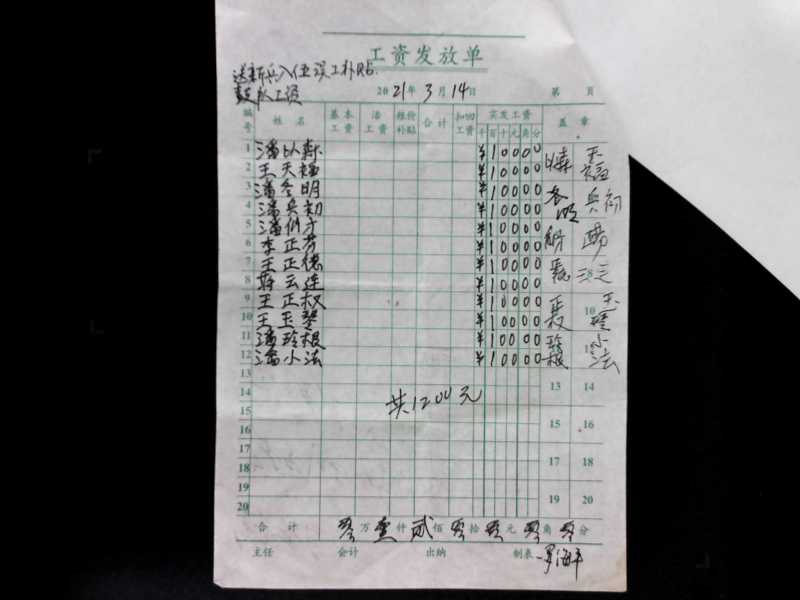 工资发放单
送新兵入伍误工补贴
鼓队工资
2021年3月14日 第 页
编号 姓名 基本工资 浩工资 粮价补贴 合计 扣回工资 实发工资 盖章
千百十元角分
1 潘以森 ¥10000
2 王天福 ¥10000
3 潘冬明 ¥10000
4 潘兵初 ¥10000
5 潘俏才 ¥10000
6 李正芳 ¥10000
7 王正德 ¥10000
8 蒋云连 ¥10000
9 王正权 ¥10000
10 王玉琴 ¥10000
11 潘玲根 ¥10000
12 潘小法 ¥10000
13 13 14
14
共1200元
15 15 16
16
17 17 18
18
19 19 20
20
合计 零万壹仟贰佰零拾零元零角零分
主任 会计 出纳 制表 罗海平